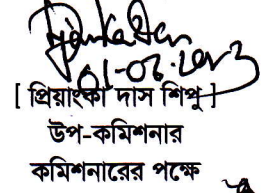 01-06-2023
[ প্রিয়াংকা দাস শিপু ]
উপ-কমিশনার
কমিশনারের পক্ষে